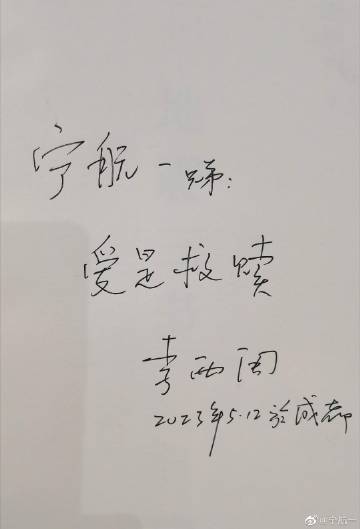 宁航一兄弟：
爱是救赎
李西闽
2023年5.12於成都
@宁航一